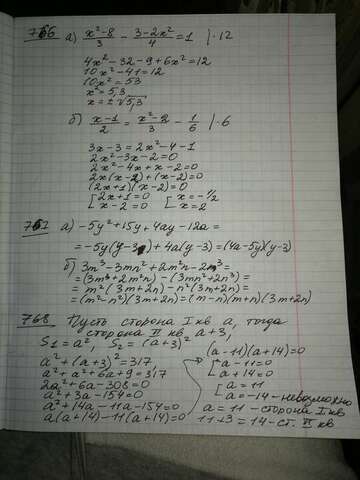 766 а) x²-8/3 - 3-2x²/4 = 1 |·12
4x²-32-9+6x²=12
10x²-41=12
10x²=53
x²=5,3
x=±√5,3
б) x-1/2 = x²-2/3 - 1/6 |·6
3x-3=2x²-4-1
2x²-3x-2=0
2x²-4x+x-2=0
2x(x-2)+(x-2)=0
(2x+1)(x-2)=0
[2x+1=0 [x=-1/2
x-2=0 x=2
761 а) -5y²+15y+4ay-12a=
=-5y(y-3)+4a(y-3)=(4a-5y)(y-3)
б) 3m³-3mn²+2m²n-2n³=
=(3m³+2m²n)-(3mn²+2n³)=
=m²(3m+2n)-n²(3m+2n)=
=(m²-n²)(3m+2n)=(m-n)(m+n)(3m+2n)
768 Пусть сторона I кв a, тогда
сторона II кв a+3,
S1=a², S2=(a+3)²
a²+(a+3)²=317
a²+a²+6a+9=317
2a²+6a-308=0
a²+3a-154=0
a²+14a-11a-154=0
a(a+14)-11(a+14)=0
(a-11)(a+14)=0
[a-11=0
a+14=0
[a=11
a=-14-невозможно
a=11-сторона I кв
11+3=14-ст. II кв